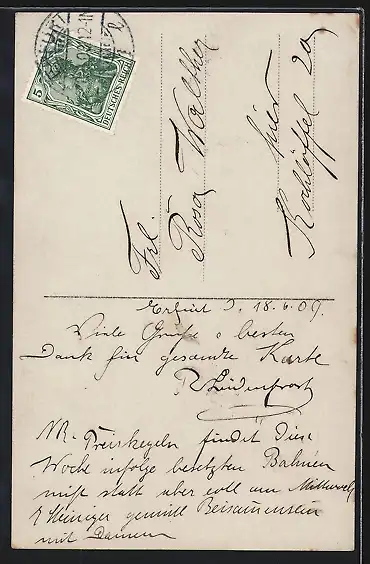 5
DEUTSCHES REICH
Frl.
Rosa Walther
hier
Kochlöffel 20
Erfurt d. 18.6.09.
Viele Grüße & besten
Dank für gesandte Karte
R Lindenfrost
NB. Preiskegeln findet diese
Woche infolge besetzten Bahnen
nicht statt aber soll am Mittwoch
gemütl Beisammensein
mit Damen